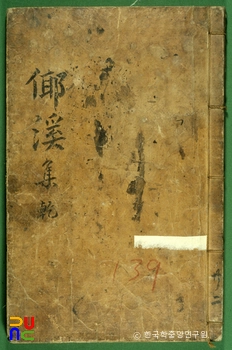 倻溪
集 乾
139
共二
© 한국학중앙연구원